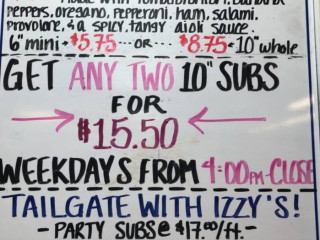 PEPPERS, oregano, PEPPERONI, ham, salami,
Provolone, & a SPICY, tangy aioli sauce.
6" mini - $5.75 - or - $8.75 - 10" whole
GET ANY TWO 10" SUBS
FOR
$15.50
WEEKDAYS FROM 4:00PM-CLOSE
TAILGATE WITH IZZY'S!
- PARTY SUBS @ $17.00/ft. -